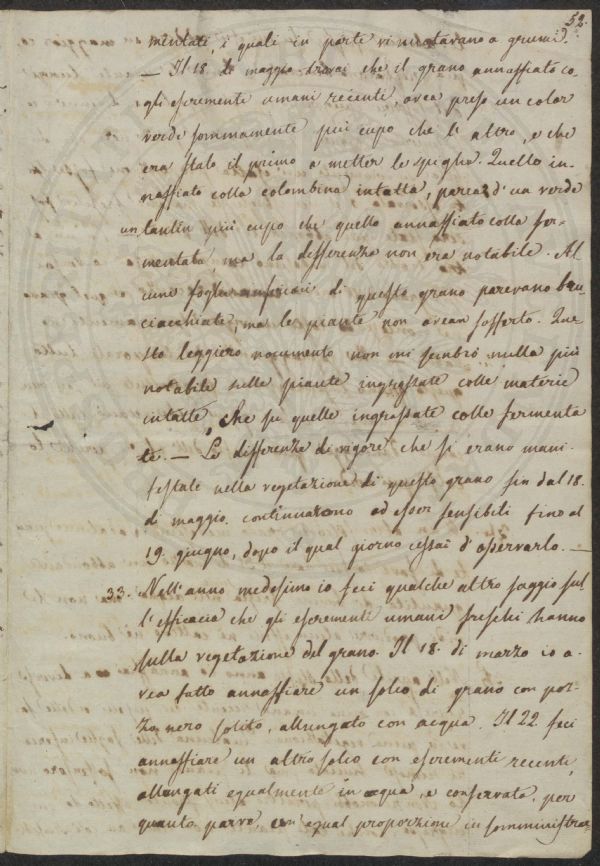 52.
mentati, i quali in parte vi nuotavano a grumi.
— Il 18 di maggio trovai che il grano annaffiato co-
gli escrementi umani recenti, avea preso un color
verde sommamente più cupo che l'altro, e che
era stato il primo a metter le spighe. Quello in-
naffiato colla colombina intatta, parea d'un verde
un tantin più cupo che quello annaffiato colla fer-
mentata, ma la differenza non era notabile. Al
cune foglie di questo grano parevano bru
ciacchiate, ma le piante non avean sofferto. Que
sto leggiero nocumento non mi sembrò nulla più
notabile sulle piante ingrassate colle materie
intatte, che su quelle ingrassate colle fermenta
te. — Le differenze di vigore che si erano mani-
festate nella vegetazione di questo grano fin dal 18.
di maggio. continuarono ad esser sensibili fino al
19. giugno, dopo il qual giorno cessai d'osservarlo. —
33. Nell'anno medesimo io feci qualche altro saggio sul
l'efficacia che gli escrementi umani freschi hanno
sulla vegetazione del grano. Il 18. di marzo io a-
vea fatto annaffiare un solco di grano con poz-
zo nero solito, allungato con acqua. Il 22. feci
annaffiare un altro solco con escrementi recenti,
allungati egualmente in acqua, e conservata, per
quanto parve, egual proporzione in somministrar